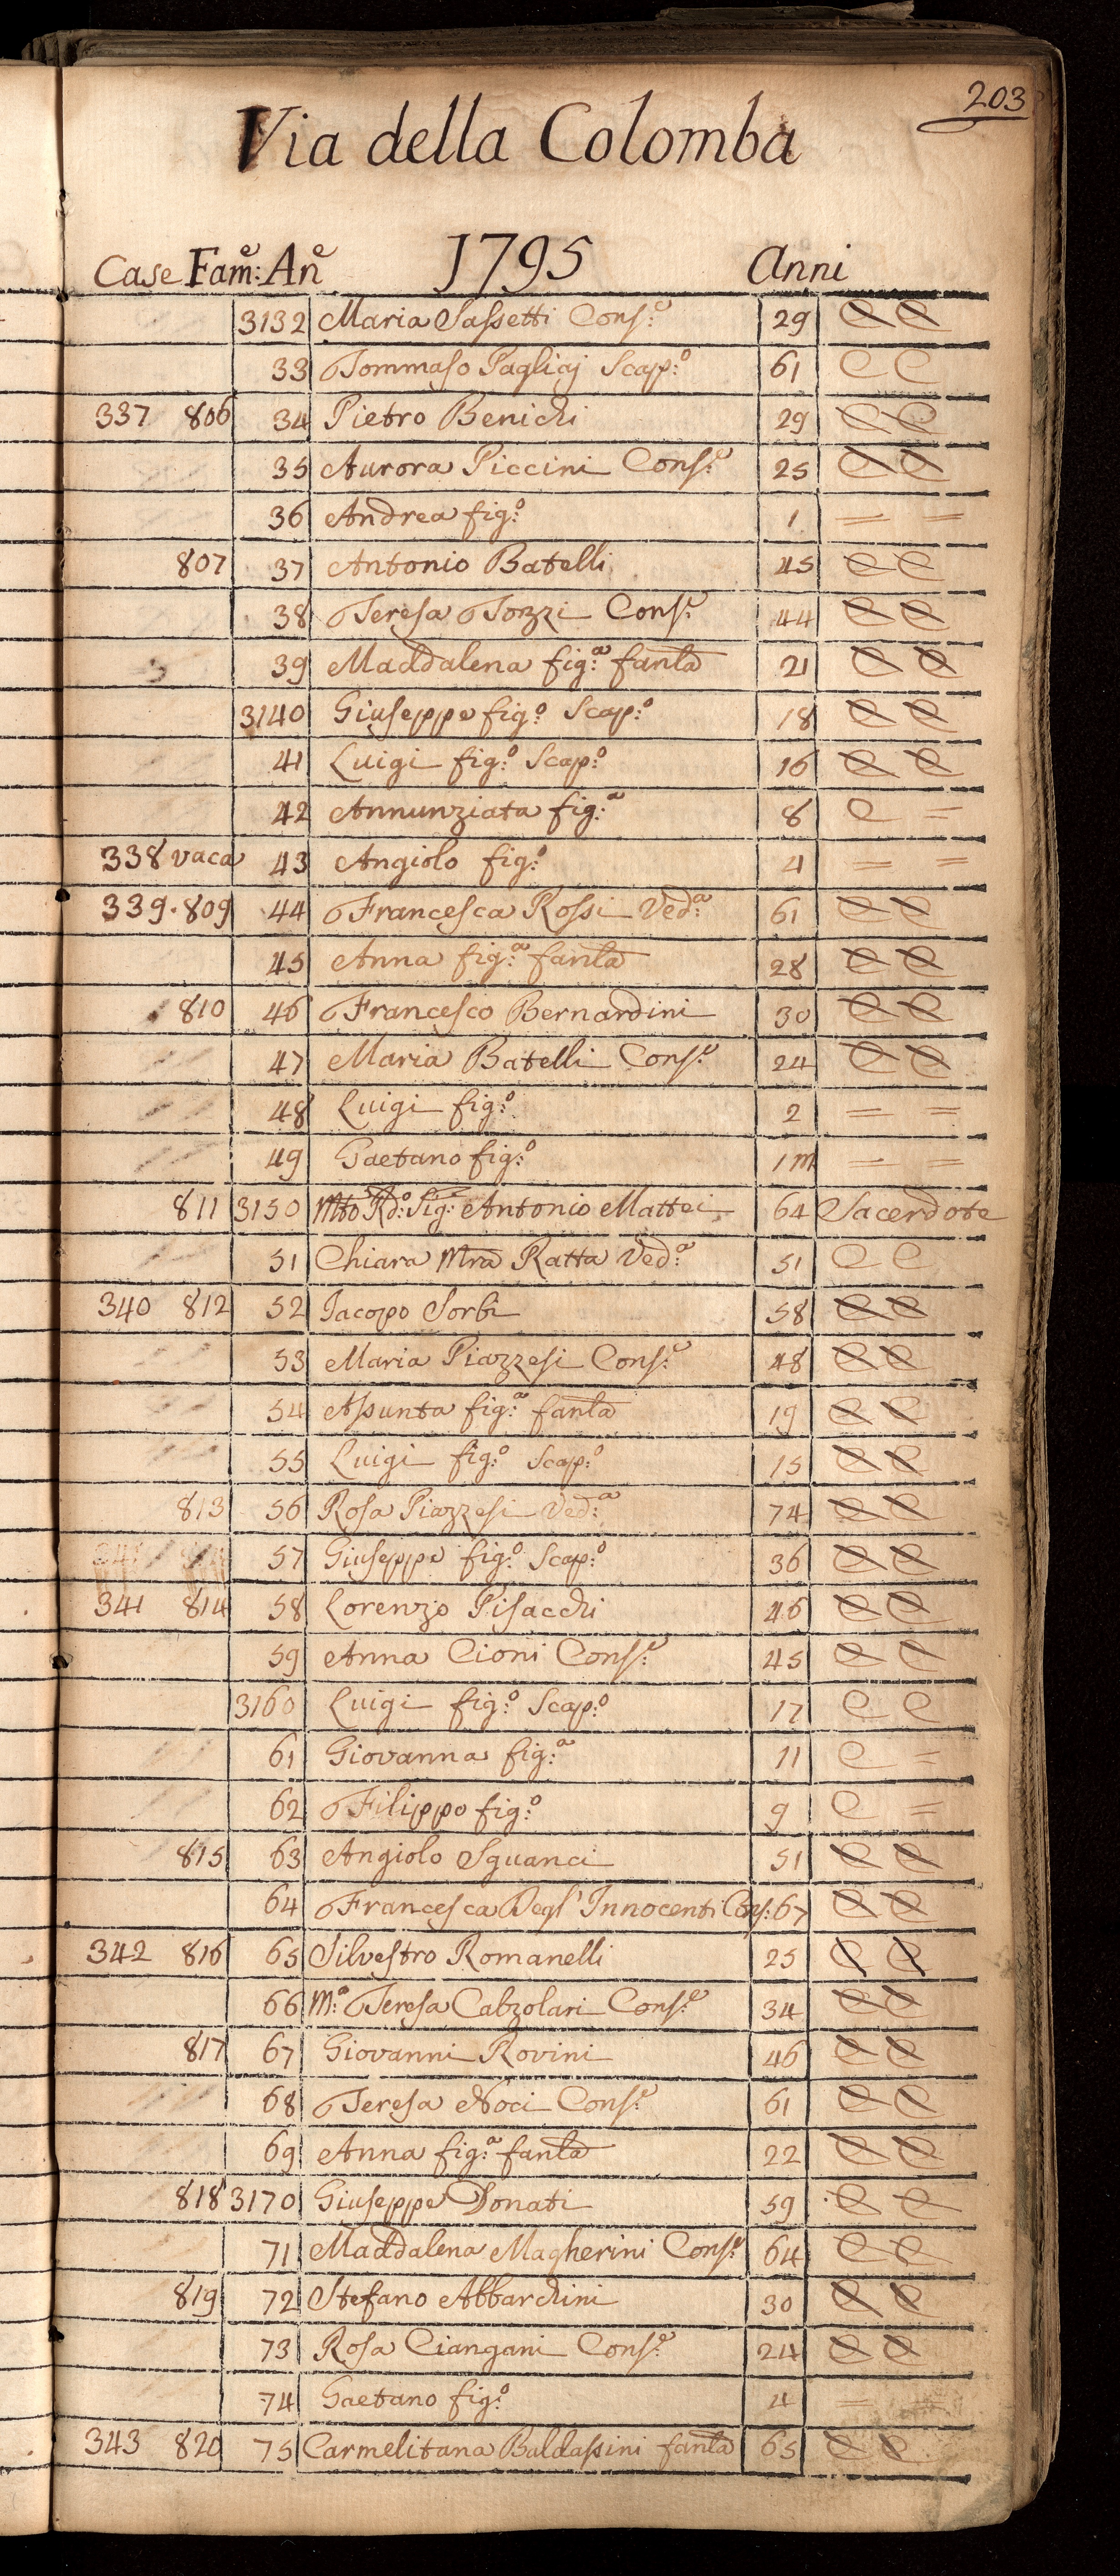 203
Via della Colomba
Case Fam:e An:e 1795 Anni
3132 Maria Sassetti Cons:e 29 C C
33 Tommaso Pagliaj Scap:o 61 C C
337 806 34 Pietro Benichi 29 C C
35 Aurora Piccini Cons:e 25 C C
36 Andrea fig:o 1 = =
807 37 Antonio Batelli 45 C C
38 Teresa Tozzi Cons:e 44 C C
39 Maddalena fig:a fanla 21 C C
3140 Giuseppe fig:o Scap:o 18 C C
41 Luigi fig:o Scap:o 16 C C
42 Annunziata fig:a 8 C =
338 vaca 43 Angiolo fig:o 4 = =
339. 809 44 Francesca Rossi Ved:a 61 C C
45 Anna fig:a fanla 28 C C
810 46 Francesco Bernardini 30 C C
47 Maria Batelli Cons:e 24 C C
48 Luigi fig:o 2 = =
49 Gaetano fig:o 1 m = =
811 3150 Mto Rd:o Sig: Antonio Mattei 64 Sacerdote
51 Chiara Mra Ratta Ved:a 51 C C
340 812 52 Jacopo Sorbi 58 C C
53 Maria Piazzesi Cons:e 48 C C
54 Assunta fig:a fanla 19 C C
55 Luigi fig:o Scap:o 15 C C
813 56 Rosa Piazzesi Ved:a 74 C C
57 Giuseppe fig:o Scap:o 36 C C
341 814 58 Lorenzo Pisacchi 46 C C
59 Anna Cioni Cons:e 45 C C
3160 Luigi fig:o Scap:o 17 C C
61 Giovanna fig:a 11 C =
62 Filippo fig:o 9 C =
815 63 Angiolo Sguanci 51 C C
64 Francesca Degl' Innocenti Cons: 67 C C
342 816 65 Silvestro Romanelli 25 C C
66 M:a Teresa Cabzolari Cons:e 34 C C
817 67 Giovanni Rovini 46 C C
68 Teresa Noci Cons:e 61 C C
69 Anna fig:a fanla 22 C C
818 3170 Giuseppe Donati 59 C C
71 Maddalena Magherini Cons:e 64 C C
819 72 Stefano Abbarchini 30 C C
73 Rosa Ciangani Cons:e 24 C C
74 Gaetano fig:o 4 = =
343 820 75 Carmelitana Baldassini fanla 65 C C